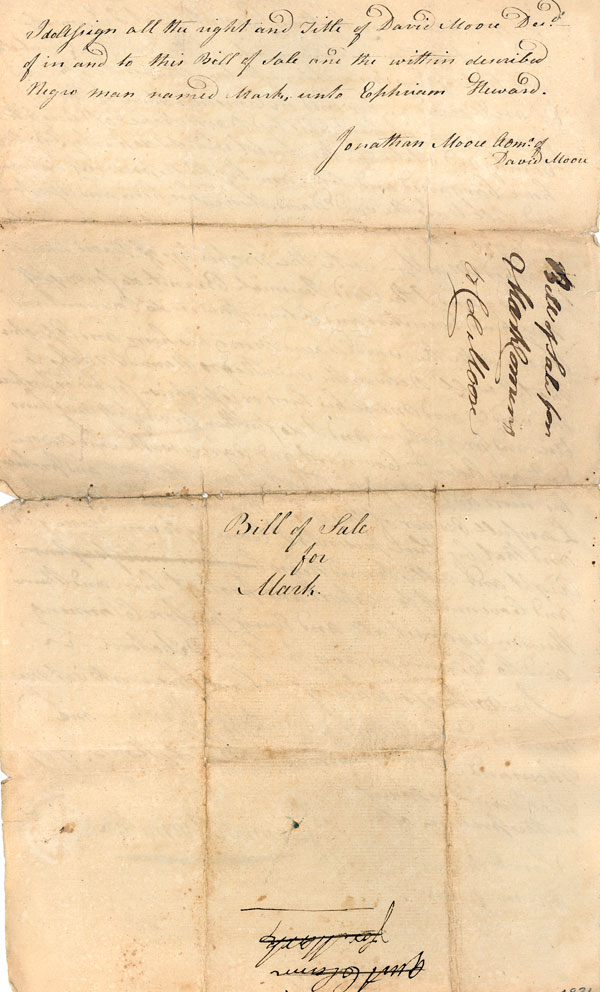 I do Assign all the right and Title of David Moore Decd
of in and to this Bill of Sale and the within described
Negro man named Mark, unto Ephriam Heward.
Jonathan Moore Admr. of
David Moore
Bill of Sale for
Bill of Sale
for
Mark.
for Mark